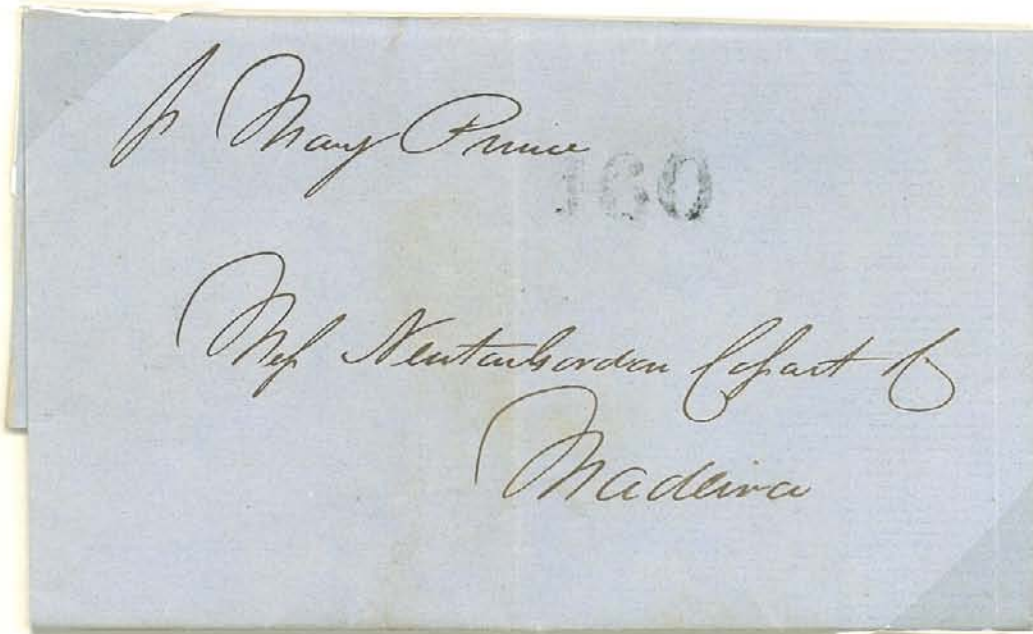 pr Mary Prince
160
Mess Newton Gordon Cossart Co
Madeira